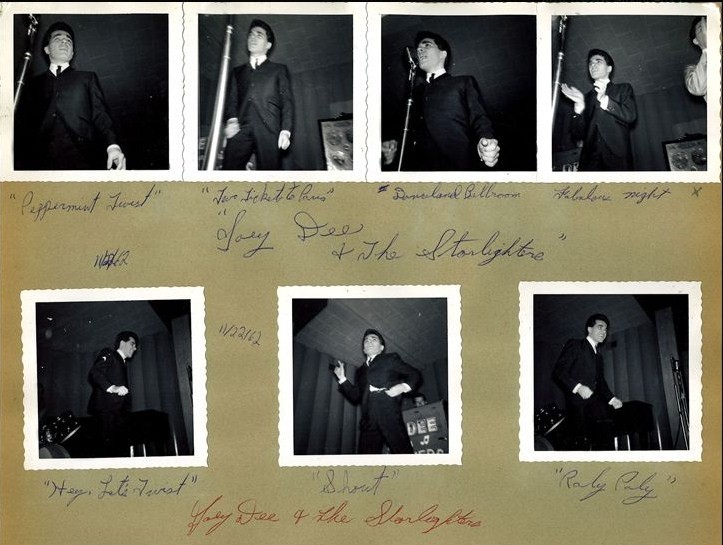 "Peppermint Twist" "Two Ticket to Paris" Danceland Ballroom Fabulous night x
"Joey Dee
& The Starlighters"
11/22/62
11/22/62
DEE
"Hey, Let's Twist" "Shout" "Roly Poly"
Joey Dee & The Starlighters